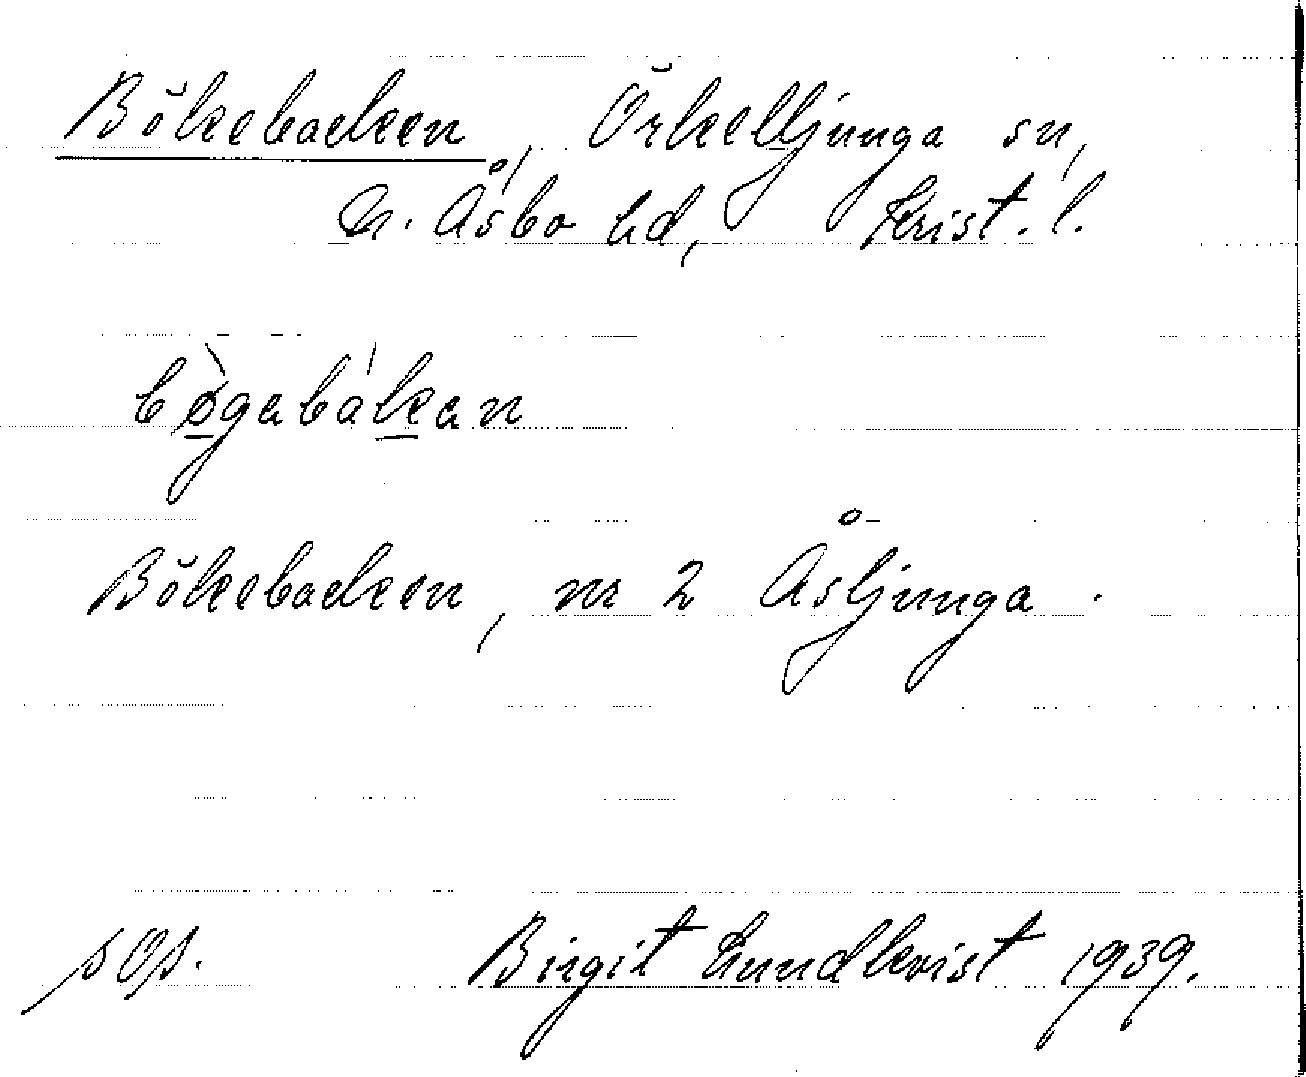 Bökebacken, Örkelljunga sn,
N. Åsbo hd, Krist. l.
bø̀gabákan
Bökebacken, nr 2 Åsljunga.
Birgit Lundkvist 1939.